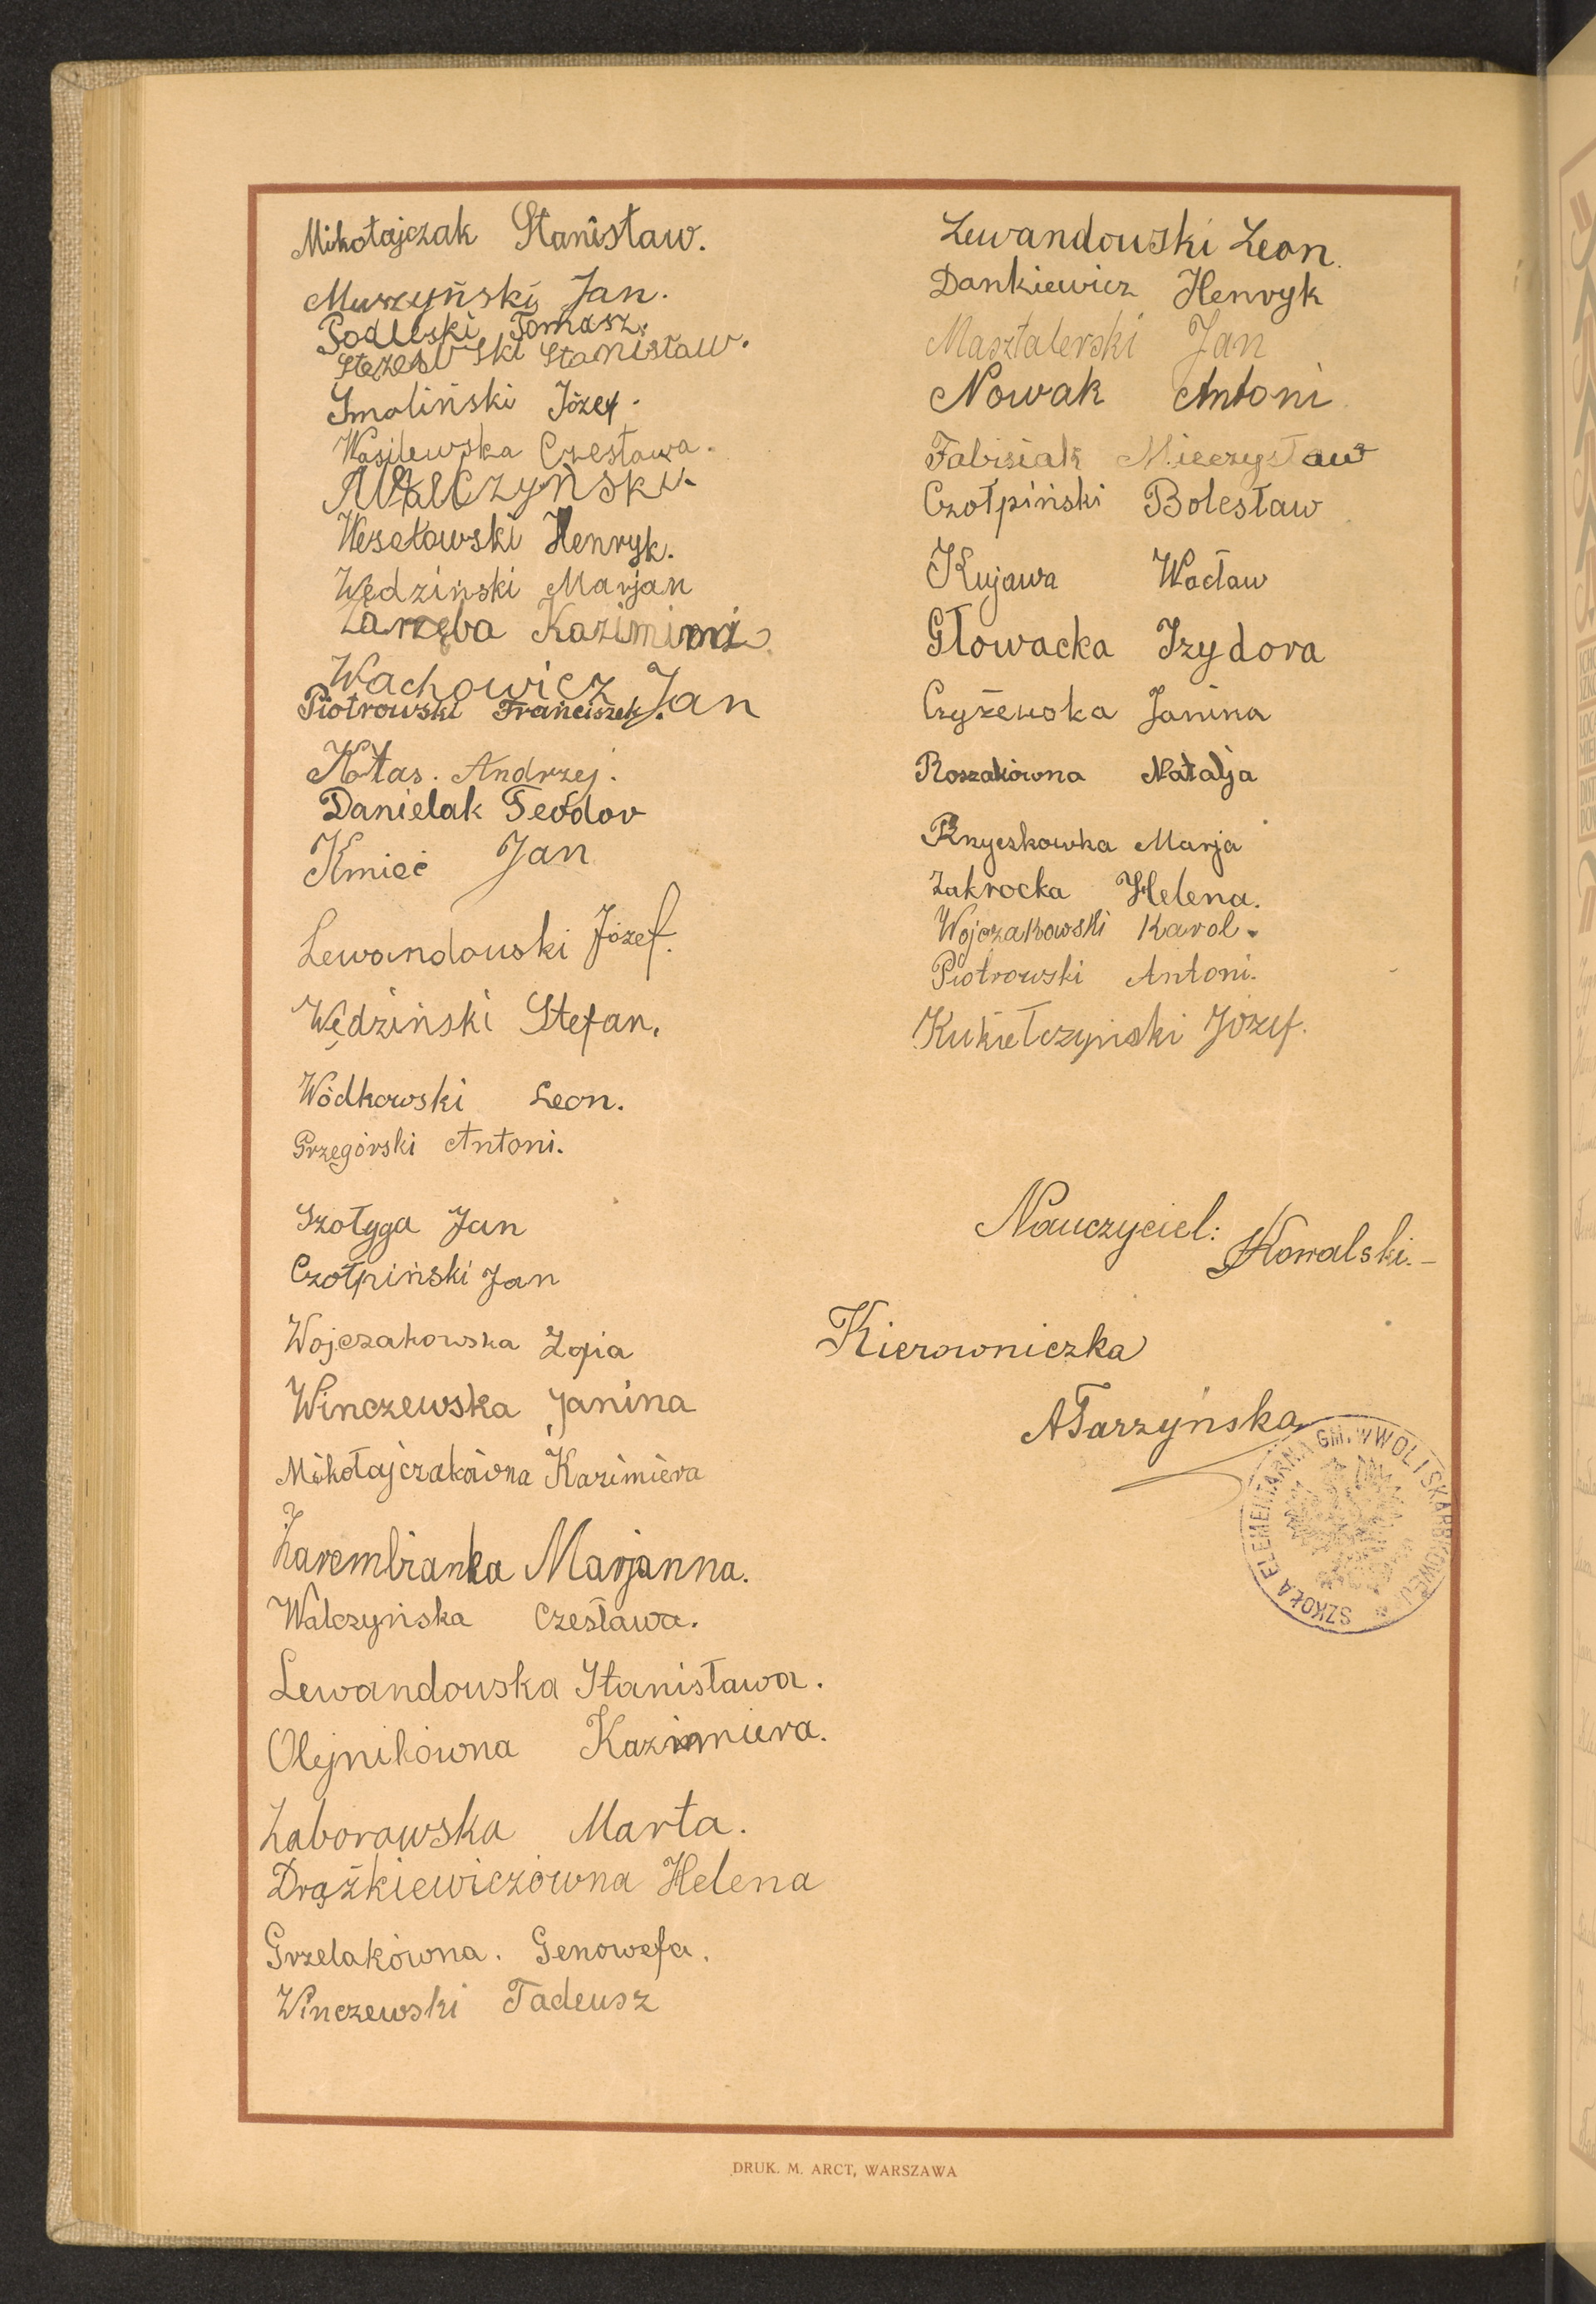 Mikołajczak Stanisław.
Murzyński Jan.
Podleski Tomasz.
Stanisław.
Smoliński Józef.
Wasilewska Czesława.
Walczyński
Wesełowski Henryk.
Wędziński Marjan
Zaręba
Wachowicz Jan
Piotrowski Franciszek.
Kołas. Andrzej.
Danielak Teodor
Kmieć Jan
Lewandowski Józef.
Wędziński Stefan.
Wódkowski Leon.
Grzegórski Antoni.
Szołyga Jan
Czołpiński Jan
Wojczakowska Zofia
Winczewska Janina
Mikołajczakówna Kazimiera
Zarembianka Marjanna.
Walczyńska Czesława.
Lewandowska Stanisława.
Olejnikówna Kazimiera.
Zaborowska Marta.
Drążkiewiczówna Helena
Grzelakówna. Genowefa.
Winczewski Tadeusz
Lewandowski Leon.
Dankiewicz Henryk
Masztalerski Jan
Nowak Antoni
Fabisiak Mieczysław
Czołpiński Bolesław
Kujawa Wacław
Głowacka Izydora
Czyżewska Janina
Roszakówna Natalja
Marja
Zakrocka Helena.
Wojczakowski Karol.
Piotrowski Antoni.
Kukiełczyński Józef.
Nauczyciel: Kowalski.-
Kierowniczka
ATarzyńska
SZKOŁA ELEMENTARNA GM. W WOLI SKARBKOWEJ
DRUK. M. ARCT, WARSZAWA